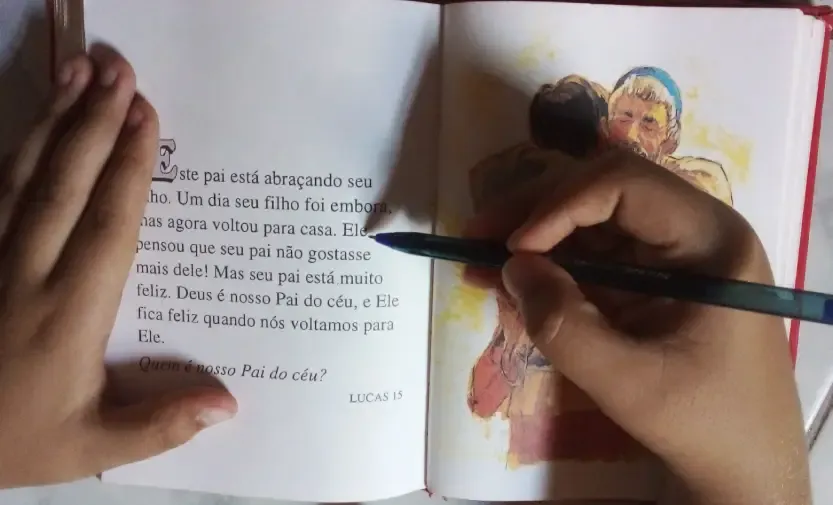 Este pai está abraçando seu
filho. Um dia seu filho foi embora,
mas agora voltou para casa. Ele
pensou que seu pai não gostasse
mais dele! Mas seu pai está muito
feliz. Deus é nosso Pai do céu, e Ele
fica feliz quando nós voltamos para
Ele.
Quem é nosso Pai do céu?
LUCAS 15